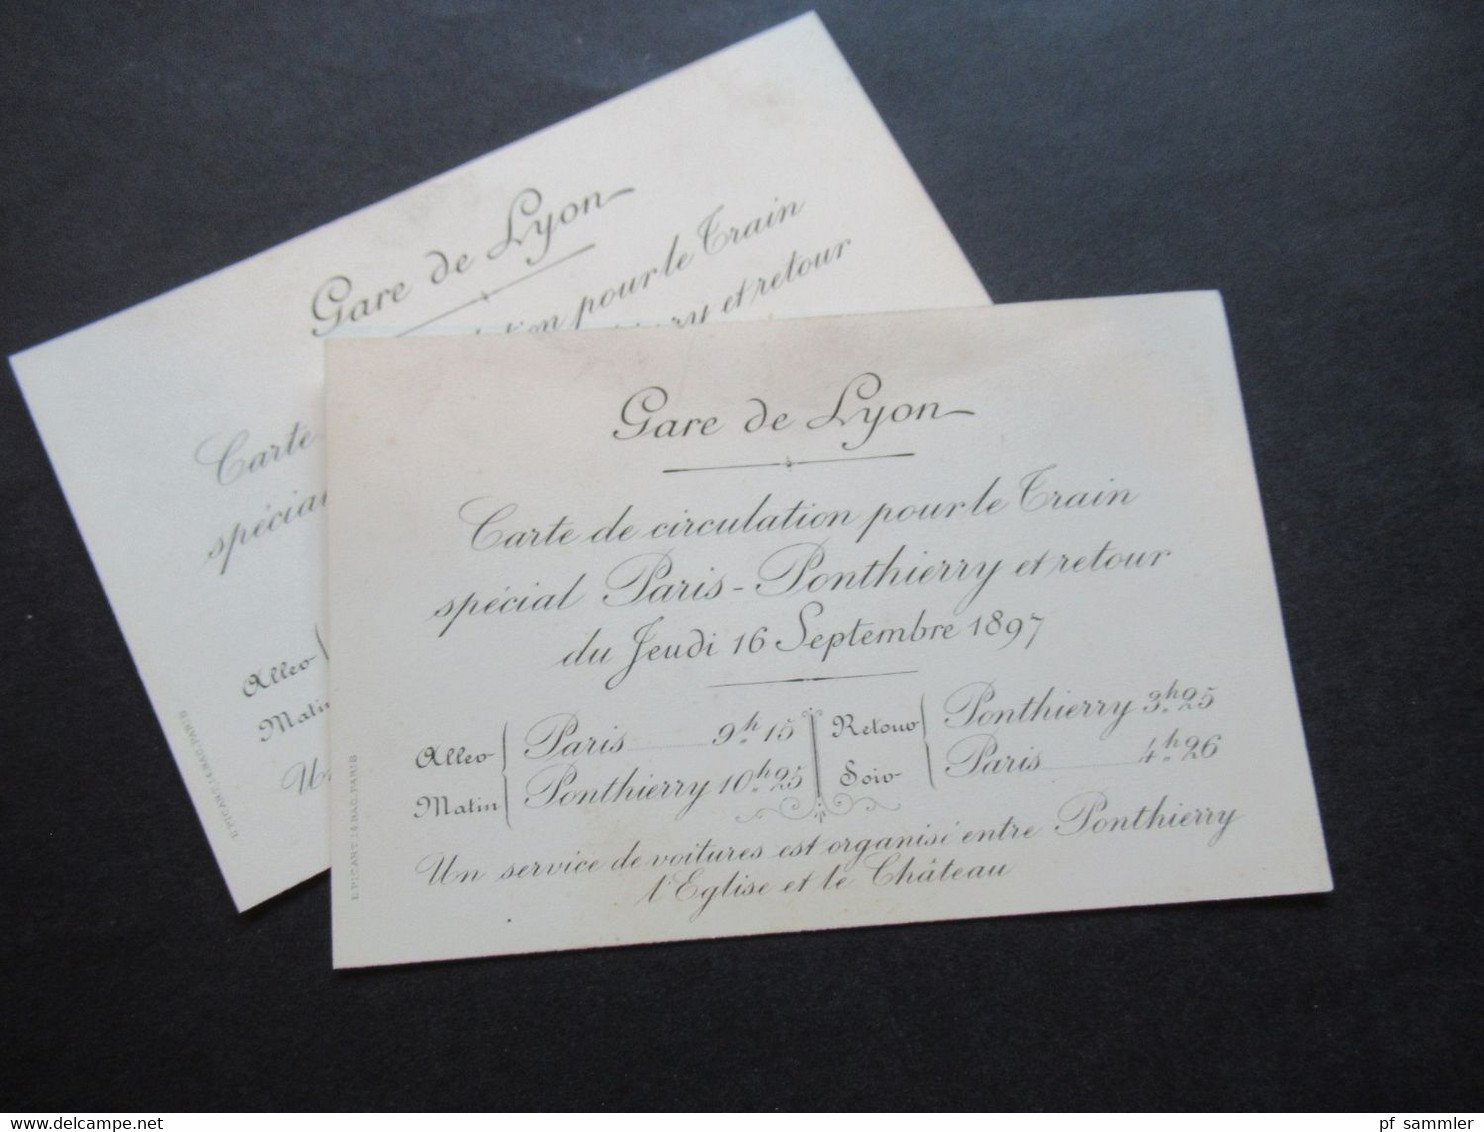 Gare de Lyon
pour le Train
et retour
Carte
Aller
E. PICART. 14. BAC. PARIS
Gare de Lyon
Carte de circulation pour le Train
spécial Paris - Ponthierry et retour
du Jeudi 16 Septembre 1897
Aller Matin { Paris 9h 15
Ponthierry 10h 25
Retour Soir { Ponthierry 3h 25
Paris 4h 26
Un service de voitures est organisé entre Ponthierry
l'Eglise et le Château
E. PICART. 14. BAC. PARIS
www.delcampe.net
pf_sammler